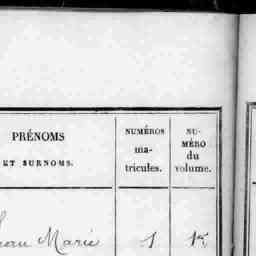 PRÉNOMS
ET SURNOMS.
NUMÉROS
ma-
tricules.
NU-
MÉRO
du
volume.
Jean Marie 1